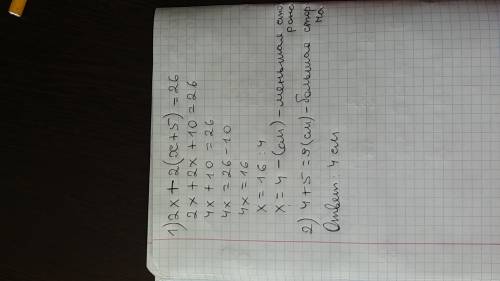 1) 2x + 2(x+5) = 26
2x + 2x + 10 = 26
4x + 10 = 26
4x = 26 - 10
4x = 16
x = 16 : 4
x = 4 - (см) - меньшая сторона
2) 4 + 5 = 9 (см) - большая сторона
Ответ: 4 см